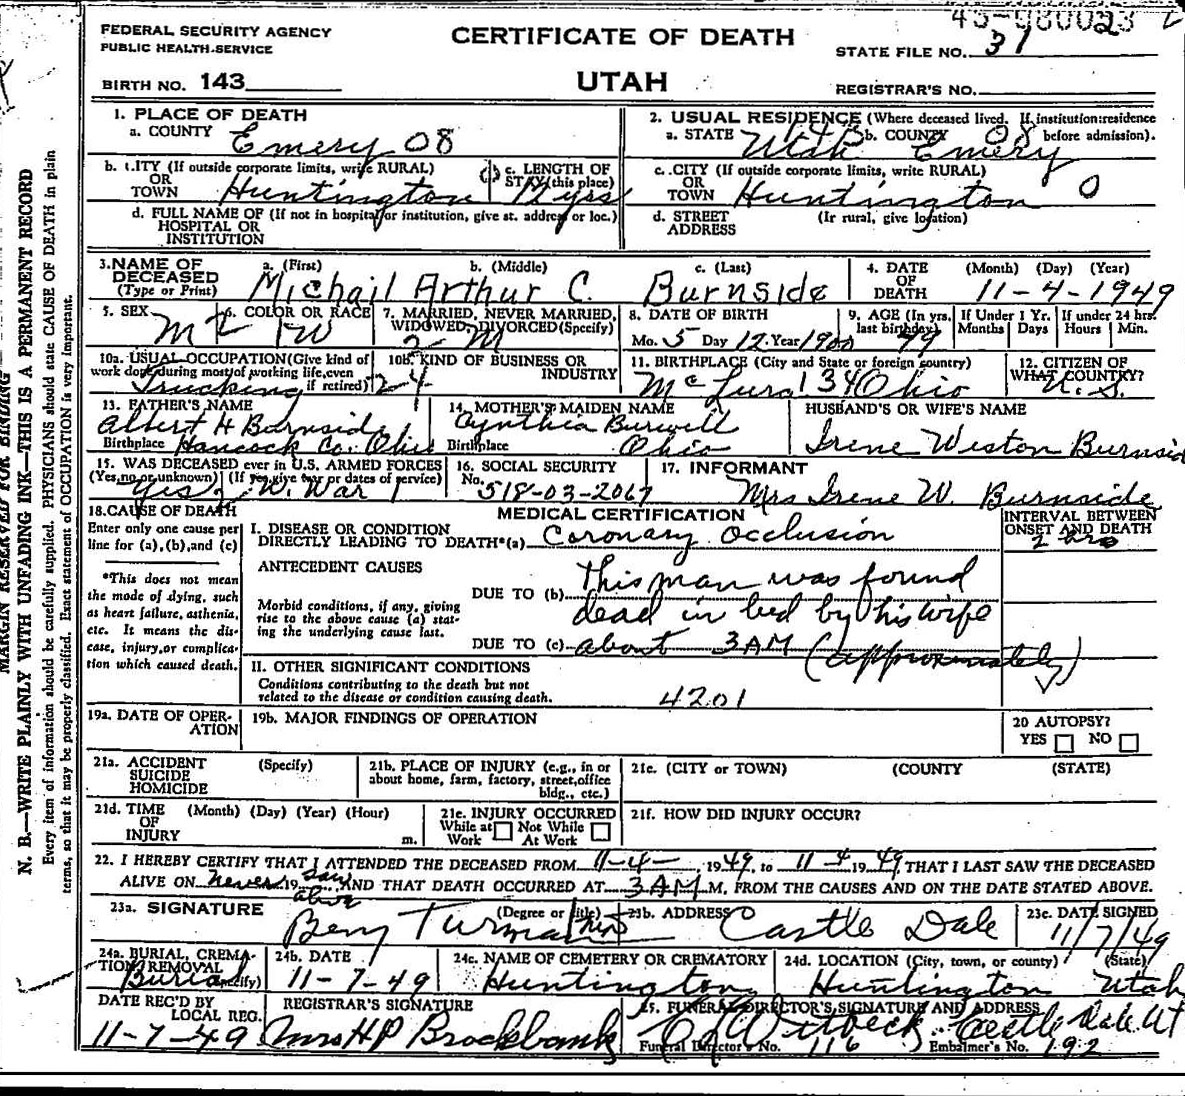 FEDERAL SECURITY AGENCY
PUBLIC HEALTH SERVICE
BIRTH NO. 143
CERTIFICATE OF DEATH
UTAH
STATE FILE NO. 31
REGISTRAR'S NO.
MARGIN RESERVED FOR BINDING
N. B.—WRITE PLAINLY WITH UNFADING INK—THIS IS A PERMANENT RECORD
Every item of information should be carefully supplied. PHYSICIANS should state CAUSE OF DEATH in plain
terms, so that it may be properly classified. Exact statement of OCCUPATION is very important.
1. PLACE OF DEATH
a. COUNTY Emery 08
b. CITY (If outside corporate limits, write RURAL)
OR
TOWN Huntington
c. LENGTH OF
STAY (this place)
yrs
d. FULL NAME OF (If not in hospital or institution, give st. address or loc.)
HOSPITAL OR
INSTITUTION
2. USUAL RESIDENCE (Where deceased lived. If institution: residence
before admission).
a. STATE Utah b. COUNTY Emery 08
c. CITY (If outside corporate limits, write RURAL)
OR
TOWN Huntington 0
d. STREET (If rural, give location)
ADDRESS
3. NAME OF
DECEASED
(Type or Print)
a. (First) b. (Middle) c. (Last)
Michail Arthur C. Burnside
4. DATE (Month) (Day) (Year)
OF
DEATH 11-4-1949
5. SEX M
6. COLOR OR RACE W
7. MARRIED, NEVER MARRIED,
WIDOWED, DIVORCED (Specify)
2 M
8. DATE OF BIRTH
Mo. 5 Day 12 Year 1900
9. AGE (In yrs. last birthday) 49
If Under 1 Yr.
Months Days
If under 24 hrs.
Hours Min.
10a. USUAL OCCUPATION (Give kind of
work done during most of working life, even
if retired)
Trucking
10b. KIND OF BUSINESS OR
INDUSTRY
24
11. BIRTHPLACE (City and State or foreign country)
34 Ohio
12. CITIZEN OF
WHAT COUNTRY?
U.S.
13. FATHER'S NAME
Albert H Burnside
Birthplace Hancock Co. Ohio
14. MOTHER'S MAIDEN NAME
Cynthia
Birthplace Ohio
HUSBAND'S OR WIFE'S NAME
Irene Weston Burnside
15. WAS DECEASED ever in U.S. ARMED FORCES
(Yes, no, or unknown) (If yes, give war or dates of service)
Yes W. War 1
16. SOCIAL SECURITY
No. 518-03-2067
17. INFORMANT
Mrs Irene W. Burnside
18. CAUSE OF DEATH
Enter only one cause per
line for (a), (b), and (c)
*This does not mean
the mode of dying, such
as heart failure, asthenia,
etc. It means the dis-
ease, injury, or complica-
tion which caused death.
MEDICAL CERTIFICATION
INTERVAL BETWEEN
ONSET AND DEATH
I. DISEASE OR CONDITION
DIRECTLY LEADING TO DEATH*(a) Coronary Occlusion
2 hrs
ANTECEDENT CAUSES
Morbid conditions, if any, giving
rise to the above cause (a) stat-
ing the underlying cause last.
DUE TO (b) This man was found
dead in bed by his wife
DUE TO (c) about 3 AM (approximately)
II. OTHER SIGNIFICANT CONDITIONS
Conditions contributing to the death but not
related to the disease or condition causing death.
4201
19a. DATE OF OPER-
ATION
19b. MAJOR FINDINGS OF OPERATION
20 AUTOPSY?
YES NO
21a. ACCIDENT (Specify)
SUICIDE
HOMICIDE
21b. PLACE OF INJURY (e.g., in or
about home, farm, factory, street, office
bldg., etc.)
21c. (CITY or TOWN) (COUNTY) (STATE)
21d. TIME (Month) (Day) (Year) (Hour)
OF
INJURY m.
21e. INJURY OCCURRED
While at Not While
Work At Work
21f. HOW DID INJURY OCCUR?
22. I HEREBY CERTIFY THAT I ATTENDED THE DECEASED FROM 11-4- 1949, to 11-4 1949, THAT I LAST SAW THE DECEASED
ALIVE ON never 19 saw alive, AND THAT DEATH OCCURRED AT 3 AM M, FROM THE CAUSES AND ON THE DATE STATED ABOVE.
23a. SIGNATURE (Degree or title)
Benj Turman MD
23b. ADDRESS
Castle Dale
23c. DATE SIGNED
11/7/49
24a. BURIAL, CREMA-
TION, REMOVAL
(Specify)
Burial
24b. DATE
11-7-49
24c. NAME OF CEMETERY OR CREMATORY
Huntington
24d. LOCATION (City, town, or county) (State)
Huntington Utah
DATE REC'D BY
LOCAL REG.
11-7-49
REGISTRAR'S SIGNATURE
Mrs H P Brockbank
25. FUNERAL DIRECTOR'S SIGNATURE AND ADDRESS
Witbeck Castle Dale Ut
Funeral Director's No. 116 Embalmer's No. 192